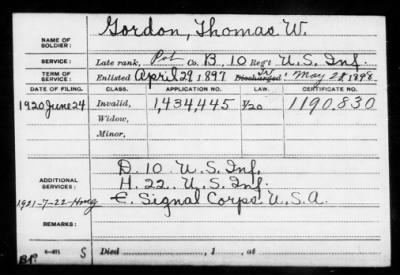 NAME OF SOLDIER: Gordon, Thomas W.
SERVICE: Late rank, Pvt Co. B, 10 Reg't U.S. Inf.
TERM OF SERVICE: Enlisted April 29, 1897 Discharged Tr May 28, 1898
DATE OF FILING. CLASS. APPLICATION NO. LAW. CERTIFICATE NO.
1920 June 24 Invalid, 1,434,445 1190.830
Widow,
Minor,
D. 10 U.S. Inf.
ADDITIONAL SERVICES: H. 22. U.S. Inf.
1921-7-22- E. Signal Corps. U.S.A.
REMARKS:
S Died , 1 , at